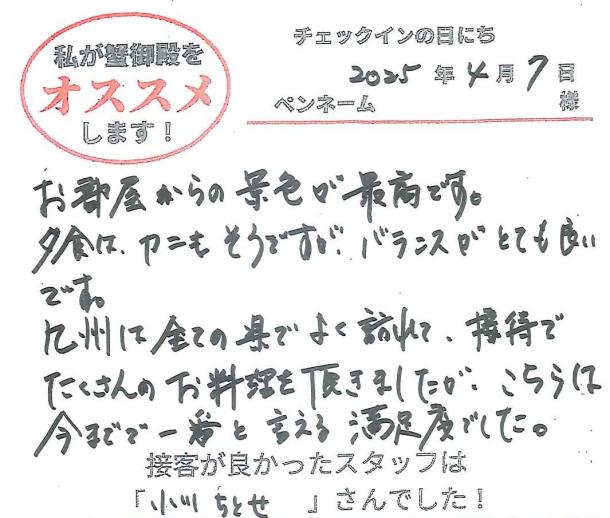 私が蟹御殿を
オススメ
します！
チェックインの日にち
2025 年 4 月 7 日
ペンネーム 様
お部屋からの景色が最高です。
夕食は、カニもそうですが、バランスがとても良い
です。
九州は全ての県でよく訪れて、接待で
たくさんのお料理を頂きましたが、こちらは
今までで一番と言える満足度でした。
接客が良かったスタッフは
「小川 ちとせ 」さんでした！